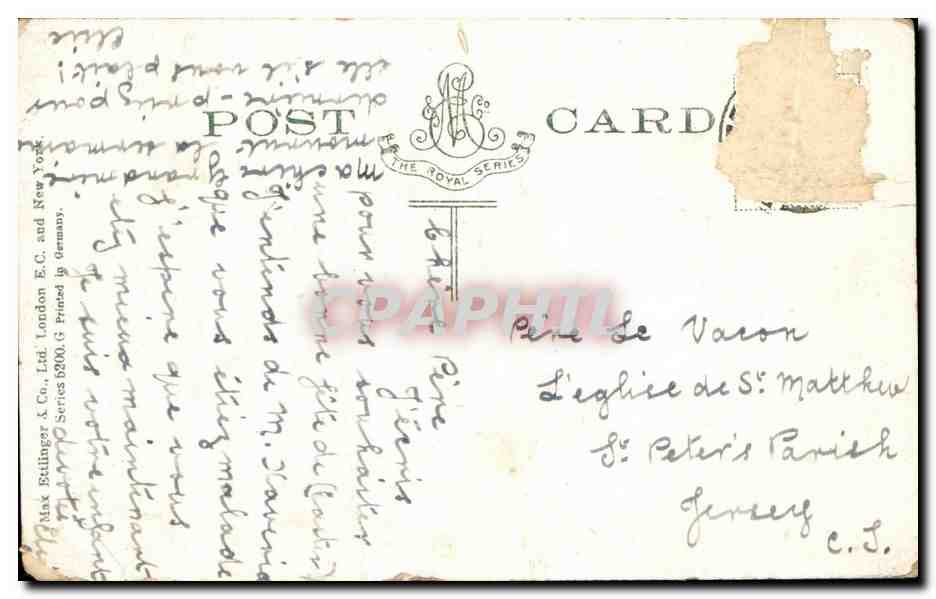 POST CARD
THE ROYAL SERIES
Max Ettlinger & Co., Ltd. London E.C. and New York.
Series 5200.G Printed in Germany.
Père Le
L'eglise de St. Matthew
St. Peter's Parish
Jersey
C. I.
Père
J'écris
pour vous souhaiter
une bonne fête de
J'entends de M.
que vous étiez malade
J'espère que vous
mieux maintenant
Je suis votre enfant
mourut la semaine
dernière - priez pour
elle s'il vous plait!
CPAPHIL